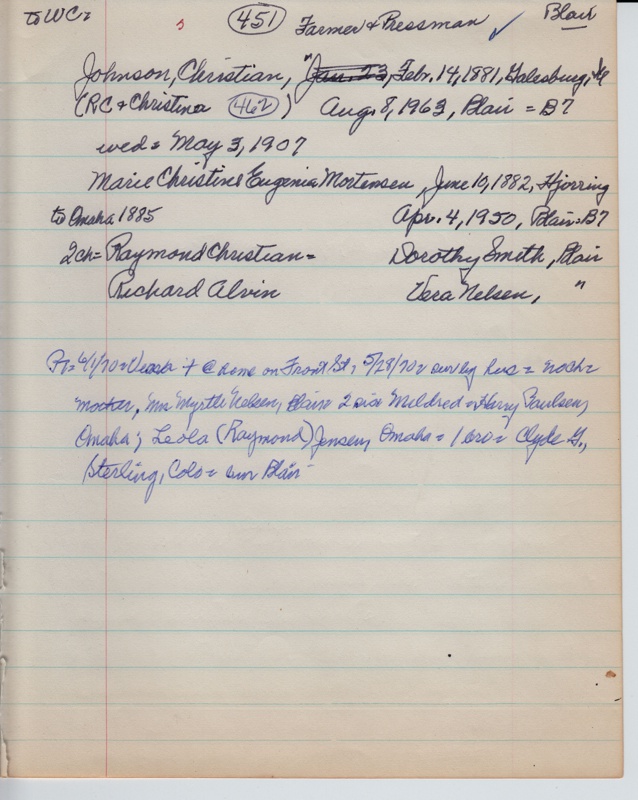 to WC = 451 Farmer & Pressman ✓ Blair
Johnson, Christian, " Jan. 23, Febr. 14, 1881, Galesburg, Ill
(RC & Christina 462) Aug. 8, 1963, Blair = B7
wed = May 3, 1907
Marie Christine Eugenia Mortensen, June 10, 1882, Hjorring
to Omaha 1885 Apr. 4, 1950, Blair = B7
2ch = Raymond Christian = Dorothy Smith, Blair
Richard Alvin Vera Nelsen, "
PT = 6/1/70 = Vera + @ home on Front St., 5/28/70 = surv by hus = noch =
mother, Mrs Myrtle Nelsen, Blair 2 sis Mildred = Harry Paulsen,
Omaha; Leola (Raymond) Jensen, Omaha = 1 bro = Clyde G.,
Sterling, Colo = bur Blair